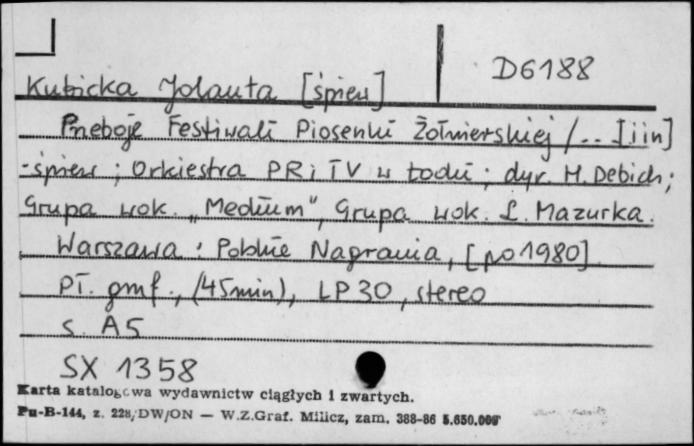 D6188
Kubicka Jolanta [śpiew]
Przeboje Festiwali Piosenki Żołnierskiej /... [i in]
- śpiew ; Orkiestra PR i TV w Łodzi ; dyr. H. Debich ;
Grupa wok. „Medium", Grupa wok. L. Mazurka.
Warszawa : Polskie Nagrania, [po 1980].
Pł. gmf., (45 min), LP 30, stereo
s. A5
SX 1358
Karta katalogowa wydawnictw ciągłych i zwartych.
Pu-B-144, z. 228/DW/ON — W.Z.Graf. Milicz, zam. 388-86 5.650.000